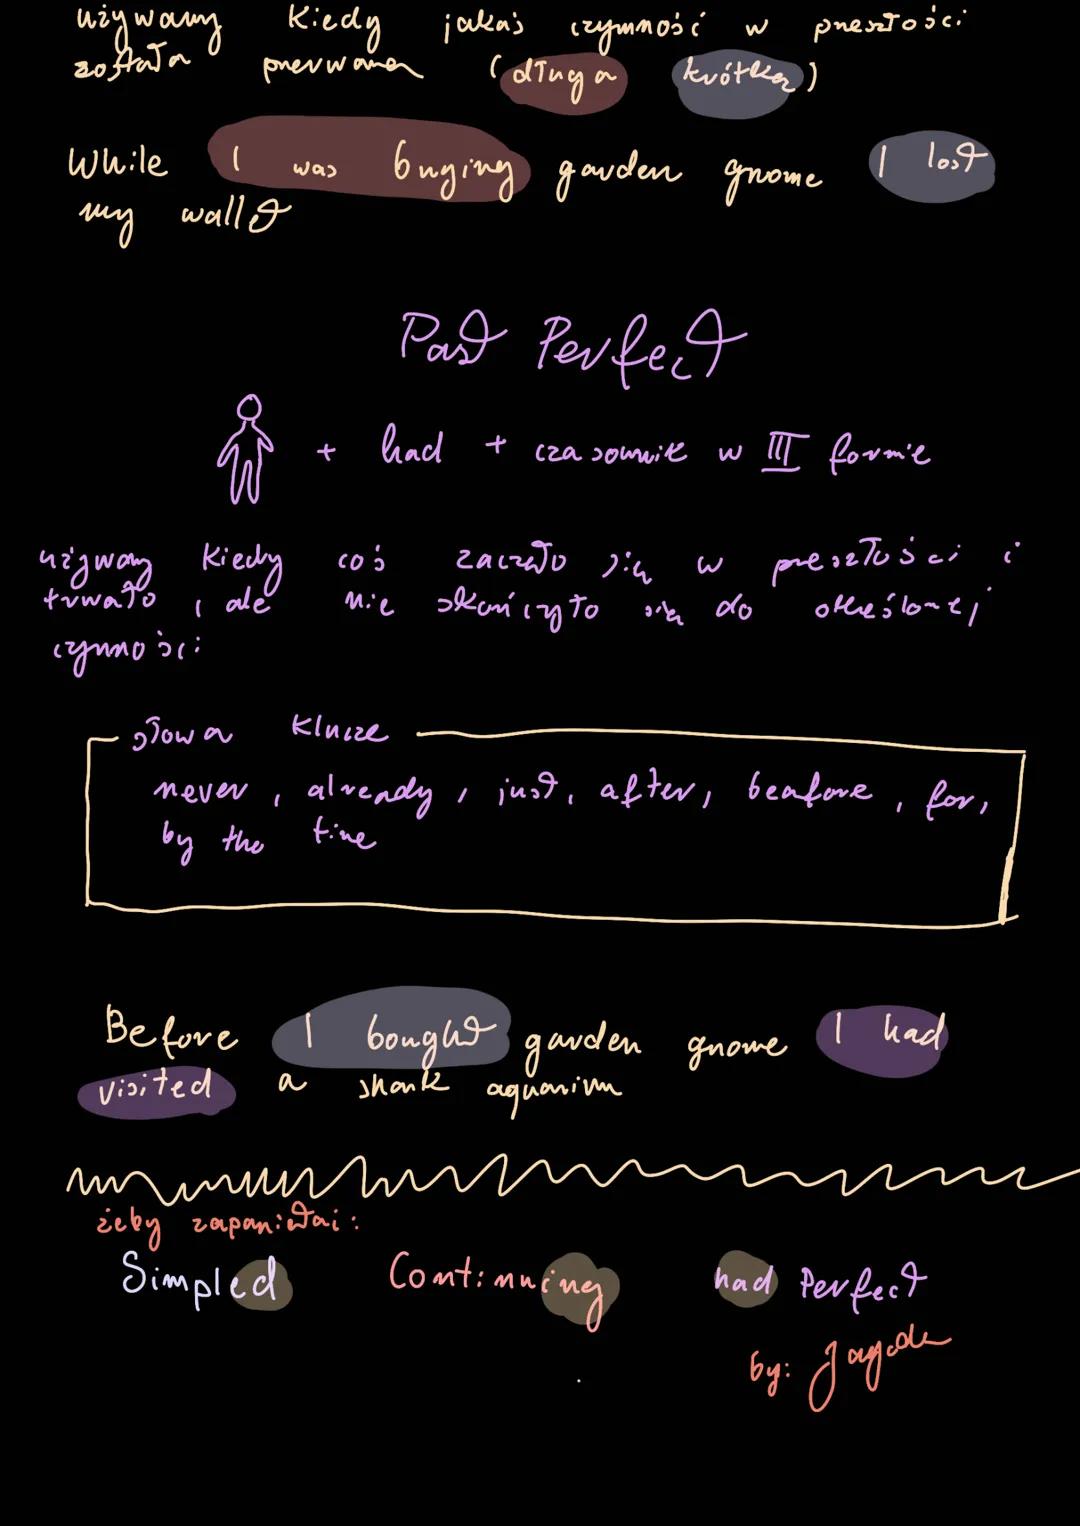 używamy kiedy jakaś czymność w przeszłości
została przerwana (długa krótka)
While I was buying garden gnome I lost
my wallet
Past Perfect
+ had + czasownik w III formie
używamy kiedy coś zaczęło się w przeszłości i
trwało, ale nie skończyło się do określonej
czynności
słowa klucze
never, already, just, after, beafore, for,
by the time
Before I bought garden gnome I had
visited a shark aquarium
żeby zapamiętać:
Simpled Continuing had Perfect
by: Jagoda